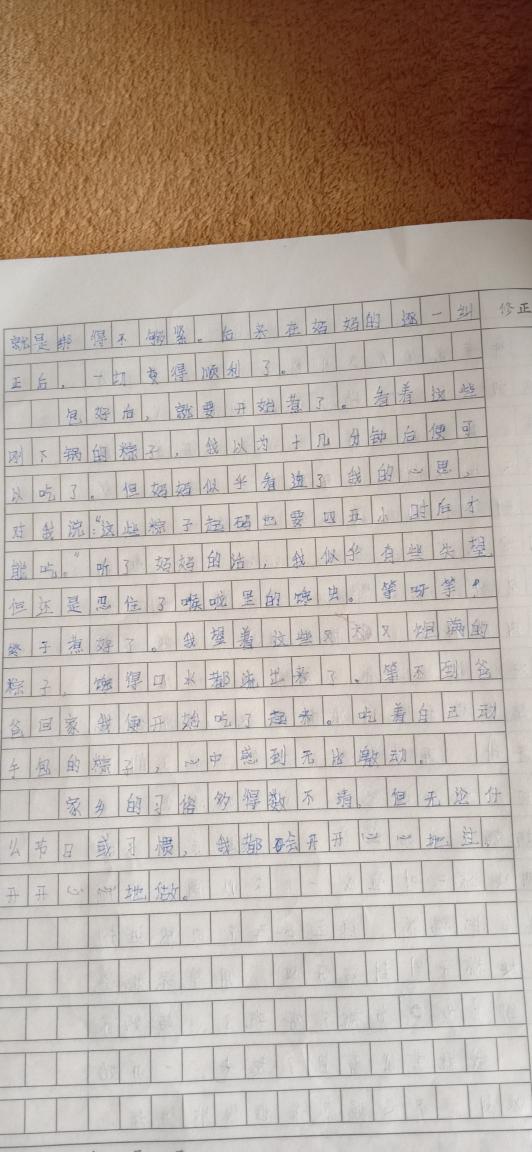 就是绑得不够紧。后来在妈妈的逐一纠
修正
正后，一切变得顺利了。
包好后，就要开始煮了。看着这些
刚下锅的粽子，我以为十几分钟后便可
以吃了。但妈妈似乎看透了我的心思，
对我说：“这些粽子起码也要四五小时后才
能吃。”听了妈妈的话，我似乎有些失望
但还是忍住了喉咙里的馋虫。等呀等，
终于煮好了。我望着这些又大又饱满的
粽子，馋得口水都流出来了。等不到爸
爸回家我便开始吃了起来。吃着自己动
手包的粽子，心中感到无比激动。
家乡的习俗多得数不清，但无论什
么节日或习惯，我都会开开心心地过，
开开心心地做。